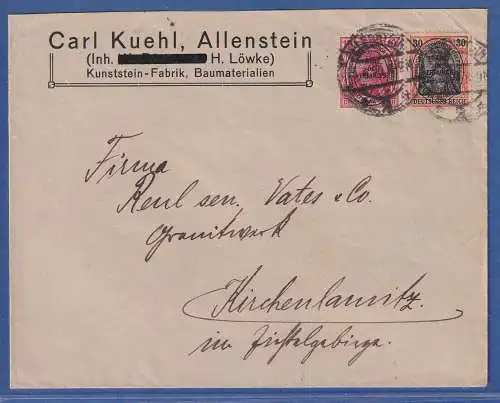 Carl Kuehl, Allenstein
(Inh. H. Löwke)
Kunststein-Fabrik, Baumaterialien
30 30
DEUTSCHES REICH
Firma
Reul sen. Vates & Co.
Granitwerk
Kirchenlamitz.
im Fichtelgebirge.